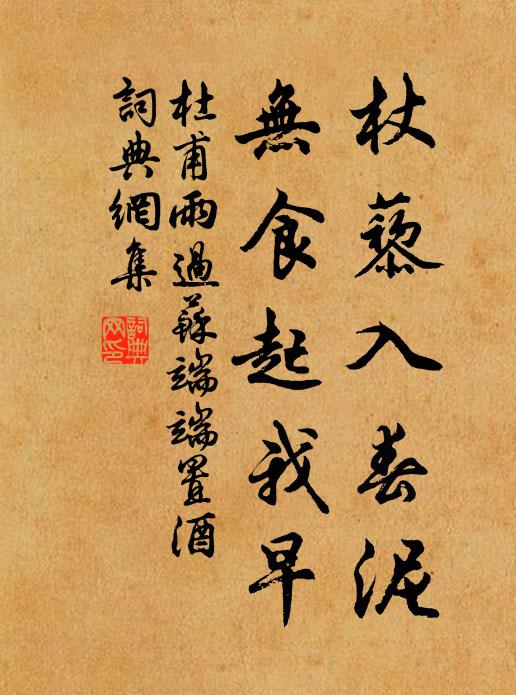 杖藜入春泥
無食起我早
杜甫雨過蘇端端置酒
詞典網集
詞典网印